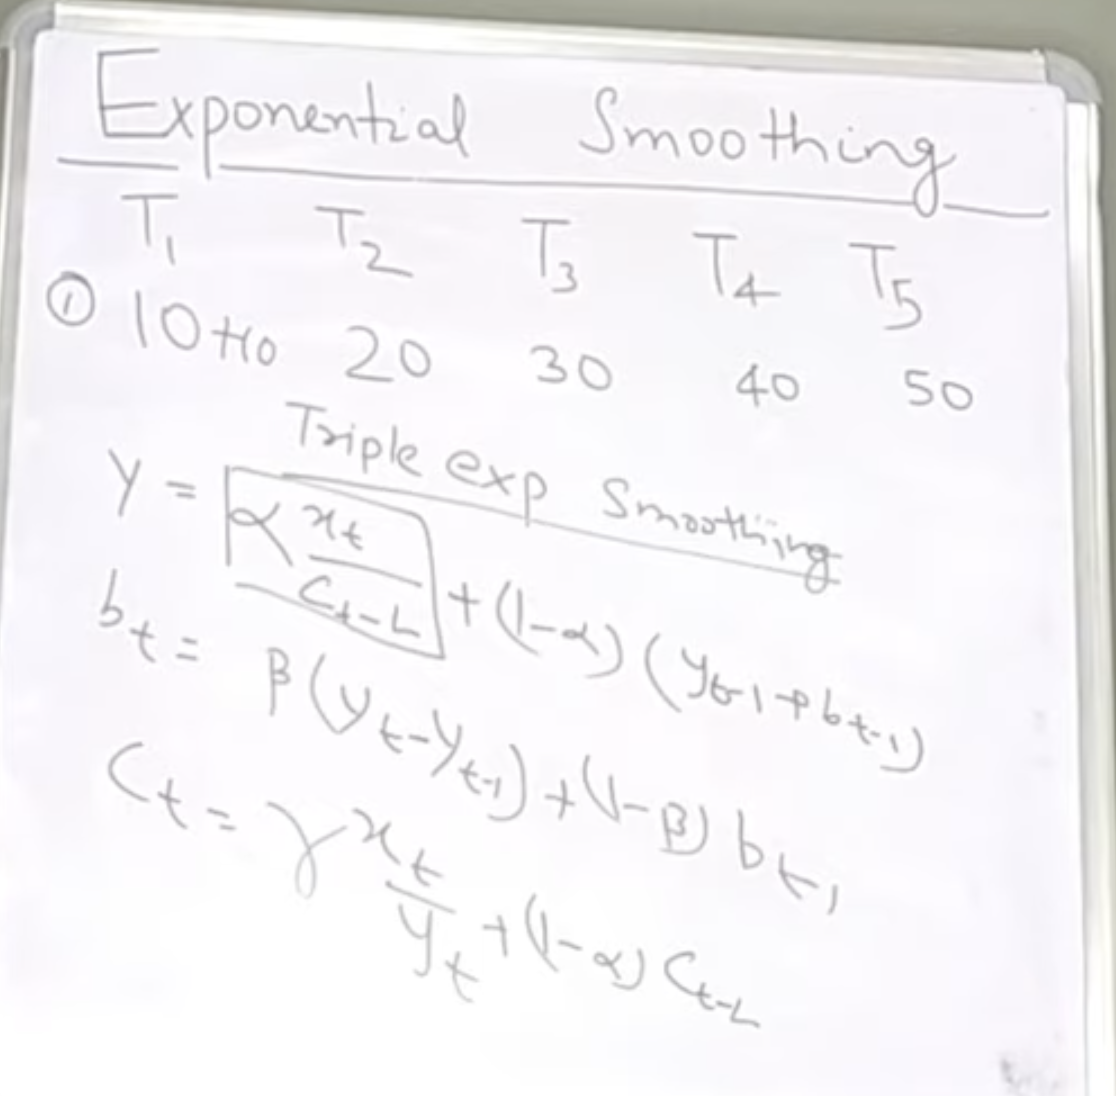 Exponential Smoothing
T₁ T₂ T₃ T₄ T₅
① 10+10 20 30 40 50
Triple exp Smoothing
y = α xₜ/Cₜ₋L + (1-α) (yₜ₋₁ + bₜ₋₁)
bₜ = β(yₜ-yₜ₋₁) + (1-β) bₜ₋₁
Cₜ = γ xₜ/yₜ + (1-α) Cₜ₋L